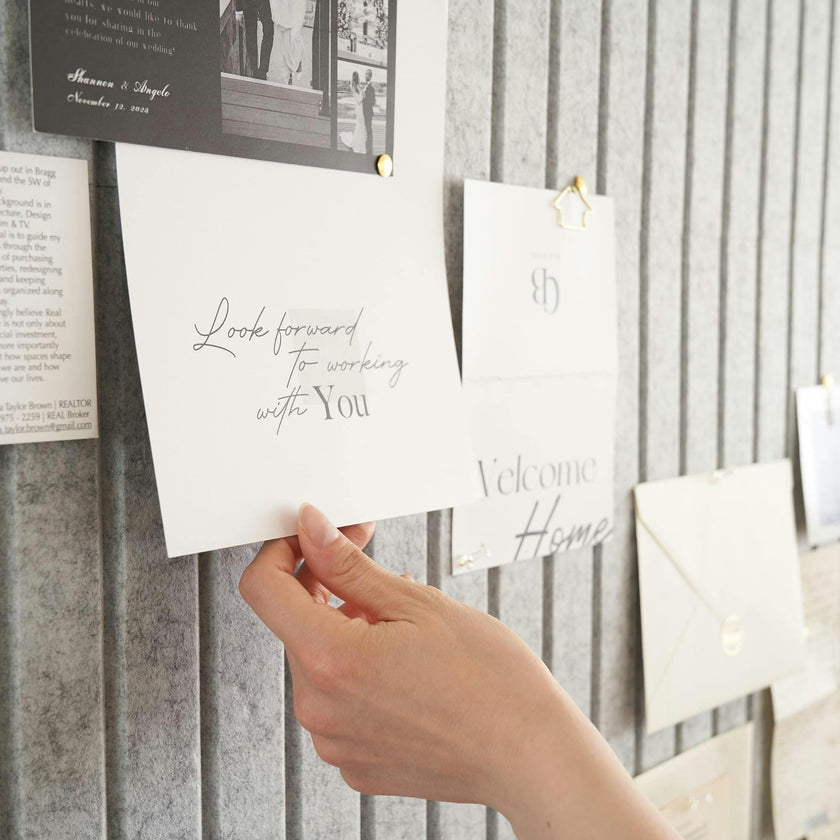 hearts, we would like to thank
you for sharing in the
celebration of our wedding!
Shannon & Angelo
November 12, 2023
up out in Bragg
and the SW of
ckground is in
ecture, Design
m & TV.
al is to guide my
through the
of purchasing
rties, redesigning
and keeping
organized along
ay.
ngly believe Real
is not only about
cial investment,
more importantly
how spaces shape
we are and how
ve our lives.
a Taylor Brown | REALTOR
975 - 2259 | REAL Broker
a.taylor.brown@gmail.com
Look forward
to working
with You
Welcome
Home